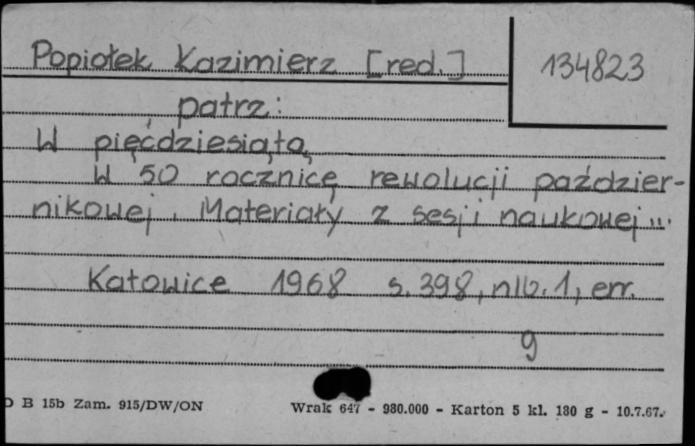 Popiołek Kazimierz [red.]
134823
patrz:
W pięćdziesiątą
W 50 rocznicę rewolucji paździer-
nikowej. Materiały z sesji naukowej...
Katowice 1968 s. 398, nlb. 1, err.
9
D B 15b Zam. 915/DW/ON
Wrak 647 - 980.000 - Karton 5 kl. 180 g - 10.7.67.